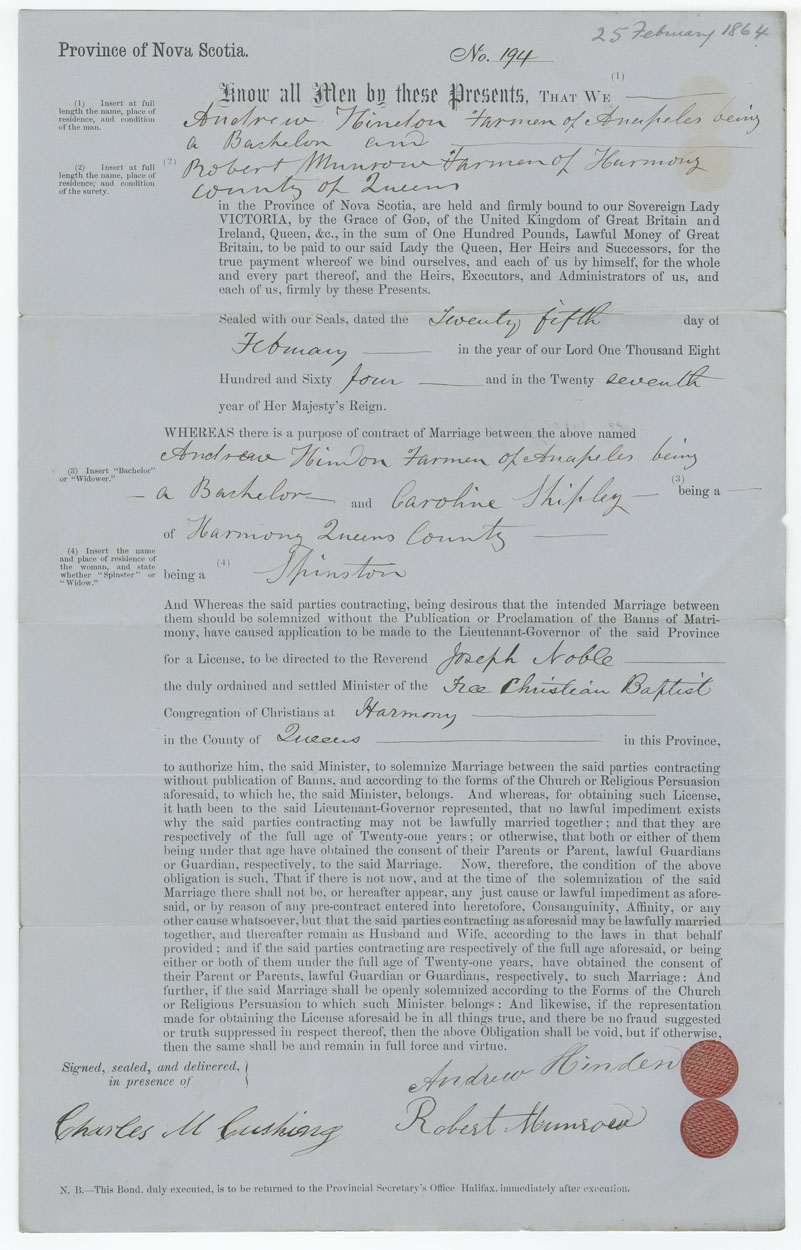 25 February 1864
Province of Nova Scotia.
No. 194
(1)
Know all Men by these Presents, THAT WE
(1) Insert at full
length the name, place of
residence, and condition
of the man.
Andrew Hindon Farmen of Anapeles being
a Bachelon and
(2) Insert at full
length the name, place of
residence; and condition
of the surety.
(2) Robert Munrow Farmen of Harmony
County of Queens
in the Province of Nova Scotia, are held and firmly bound to our Sovereign Lady
VICTORIA, by the Grace of God, of the United Kingdom of Great Britain and
Ireland, Queen, &c., in the sum of One Hundred Pounds, Lawful Money of Great
Britain, to be paid to our said Lady the Queen, Her Heirs and Successors, for the
true payment whereof we bind ourselves, and each of us by himself, for the whole
and every part thereof, and the Heirs, Executors, and Administrators of us, and
each of us, firmly by these Presents.
Sealed with our Seals, dated the Twenty fifth day of
February in the year of our Lord One Thousand Eight
Hundred and Sixty four and in the Twenty seventh
year of Her Majesty's Reign.
WHEREAS there is a purpose of contract of Marriage between the above named
Andrew Hindon Farmen of Anapeles being
(3) Insert "Bachelor"
or "Widower."
a Bachelor and Caroline Shipley (3) being a
of Harmony Queens County
(4) Insert the name
and place of residence of
the woman, and state
whether "Spinster" or
"Widow."
being a (4) Spinston
And Whereas the said parties contracting, being desirous that the intended Marriage between
them should be solemnized without the Publication or Proclamation of the Banns of Matri-
mony, have caused application to be made to the Lieutenant-Governor of the said Province
for a License, to be directed to the Reverend Joseph Noble
the duly ordained and settled Minister of the Free Christian Baptist
Congregation of Christians at Harmony
in the County of Queens in this Province,
to authorize him, the said Minister, to solemnize Marriage between the said parties contracting
without publication of Banns, and according to the forms of the Church or Religious Persuasion
aforesaid, to which he, the said Minister, belongs. And whereas, for obtaining such License,
it hath been to the said Lieutenant-Governor represented, that no lawful impediment exists
why the said parties contracting may not be lawfully married together; and that they are
respectively of the full age of Twenty-one years; or otherwise, that both or either of them
being under that age have obtained the consent of their Parents or Parent, lawful Guardians
or Guardian, respectively, to the said Marriage. Now, therefore, the condition of the above
obligation is such, That if there is not now, and at the time of the solemnization of the said
Marriage there shall not be, or hereafter appear, any just cause or lawful impediment as afore-
said, or by reason of any pre-contract entered into heretofore, Consanguinity, Affinity, or any
other cause whatsoever, but that the said parties contracting as aforesaid may be lawfully married
together, and thereafter remain as Husband and Wife, according to the laws in that behalf
provided; and if the said parties contracting are respectively of the full age aforesaid, or being
either or both of them under the full age of Twenty-one years, have obtained the consent of
their Parent or Parents, lawful Guardian or Guardians, respectively, to such Marriage: And
further, if the said Marriage shall be openly solemnized according to the Forms of the Church
or Religious Persuasion to which such Minister belongs: And likewise, if the representation
made for obtaining the License aforesaid be in all things true, and there be no fraud suggested
or truth suppressed in respect thereof, then the above Obligation shall be void, but if otherwise,
then the same shall be and remain in full force and virtue.
Signed, sealed, and delivered,
in presence of
Andrew Hinden
Charles M Cushing
Robert Munrow
N. B.—This Bond, duly executed, is to be returned to the Provincial Secretary's Office Halifax, immediately after execution.